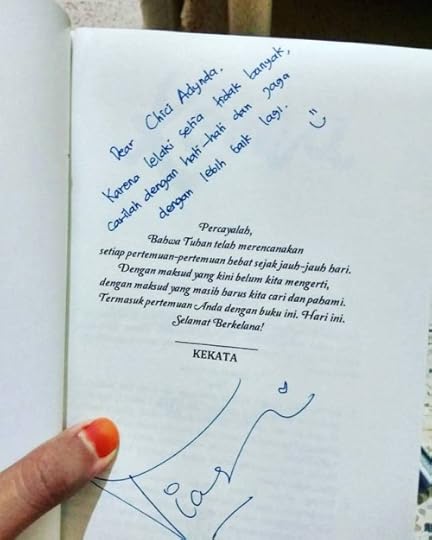 Dear Chici Adynda.
Karena lelaki setia tidak banyak,
carilah dengan hati-hati dan jaga
dengan lebih baik lagi.
Percayalah,
Bahwa Tuhan telah merencanakan
setiap pertemuan-pertemuan hebat sejak jauh-jauh hari.
Dengan maksud yang kini belum kita mengerti,
dengan maksud yang masih harus kita cari dan pahami.
Termasuk pertemuan Anda dengan buku ini. Hari ini.
Selamat Berkelana!
KEKATA